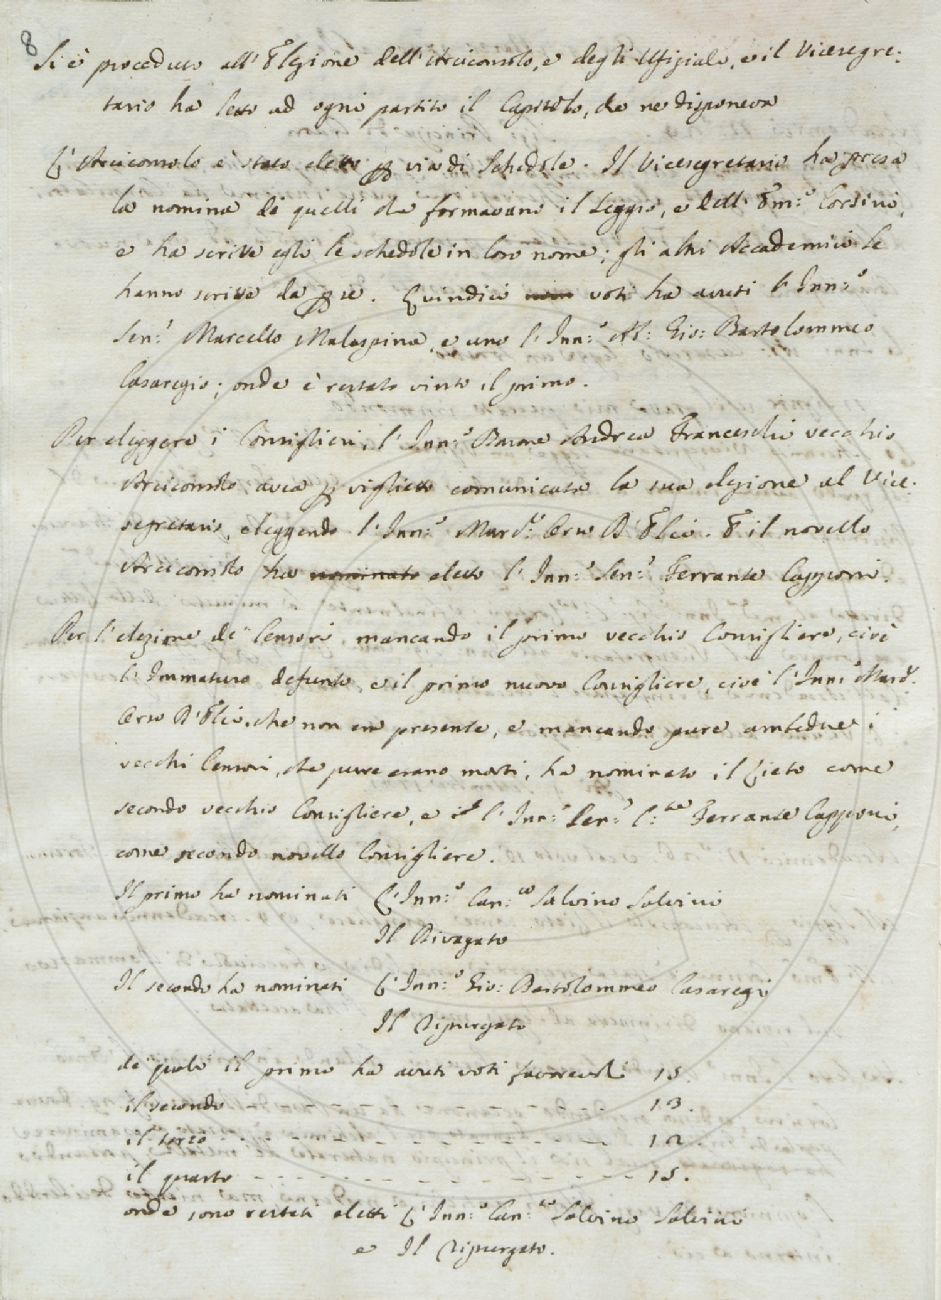 8
Si è proceduto all'Elezione dell'Arciconsolo, e degli Ufiziali, e il Vicesegre-
tario ha letto ad ogni partito il Capitolo, che ne disponeva
L'Arciconsolo è stato eletto per via di Schedole. Il Vicesegretario ha presa
la nomina di quelli che formavano il Seggio, e dell' Em.o Corsini,
e ha scritte egli le schedole in loro nome; gli altri Accademici le
hanno scritte da per se. Quindici voti ha avuti l'Inn.o
Sen.r Marcello Malaspina, e uno l'Inn.o Ab: Gio: Bartolommeo
Casaregio; onde è restato vinto il primo.
Per eleggere i Consiglieri, l'Inn.o Barone Andrea Franceschi vecchio
Arciconsolo avea per viglietto comunicata la sua elezione al Vice-
segretario, eleggendo l'Inn.o Mar.se Orso D'Elci. E il novello
Arciconsolo ha nominato eletto l'Inn.o Sen.r Ferrante Capponi.
Per l'elezione de' Censori, mancando il primo vecchio Consigliere, cioè
l'Immaturo defunto, e il primo nuovo Consigliere, cioè l'Inn.o Mar.se
Orso D'Elci, che non era presente, e mancando pure ambedue i
vecchi Censori, che pure erano morti, ha nominato il Lieto come
secondo vecchio Consigliere, e l'Inn.o Sen.r Ferrante Capponi,
come secondo novello Consigliere.
Il primo ha nominati L'Inn.o Can.co Salvino Salvini
Il Divagato
Il secondo ha nominati L'Inn.o Gio: Bartolommeo Casaregi
Il Ripurgato
de' quali il primo ha avuti voti favorevoli 15.
il secondo - - - - - - - - - - 13.
il terzo - - - - - - - - - - 12.
il quarto - - - - - - - - - - 15.
onde sono restati eletti L'Inn.o Can.co Salvino Salvini
e Il Ripurgato.